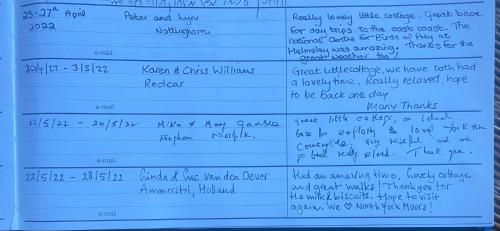 23-27th April
2022
Peter and Lyn
Nottingham
Really lovely little cottage. Great base
for day trips to the east coast. The
national centre for Birds of Prey at
Helmsley was amazing. Thanks for the
great weather too!
e-mail
30/4/22 - 3/5/22
Karen & Chris Williams
Redcar
Great Little cottage, we have both had
a lovely time. Really relaxed, hope
to be back one day
Many Thanks
e-mail
20/5/22
Mike & Mary
Norfolk.
Great little cottage, an ideal
base for exploring
Thank you.
e-mail
22/5/22 - 28/5/22
Linda & Luc van den Oever
Ammerstol, Holland
Had an amazing time, lovely cottage
and great walks! Thank you for
the milk & biscuits. Hope to visit
again. We ♡ North York Moors!
e-mail